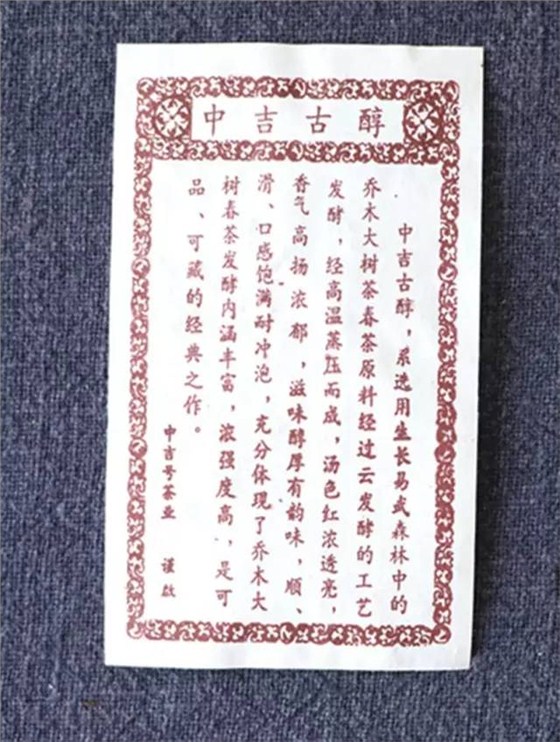 中吉古醇
中吉古醇，系选用生长易武森林中的
乔木大树茶春茶原料经过云发酵的工艺
发酵，经高温蒸压而成，汤色红浓透亮，
香气高扬浓郁，滋味醇厚有韵味，顺、
滑、口感饱满耐冲泡，充分体现了乔木大
树春茶发酵内涵丰富，浓强度高，是可
品、可藏的经典之作。
中吉号茶业 谨啟